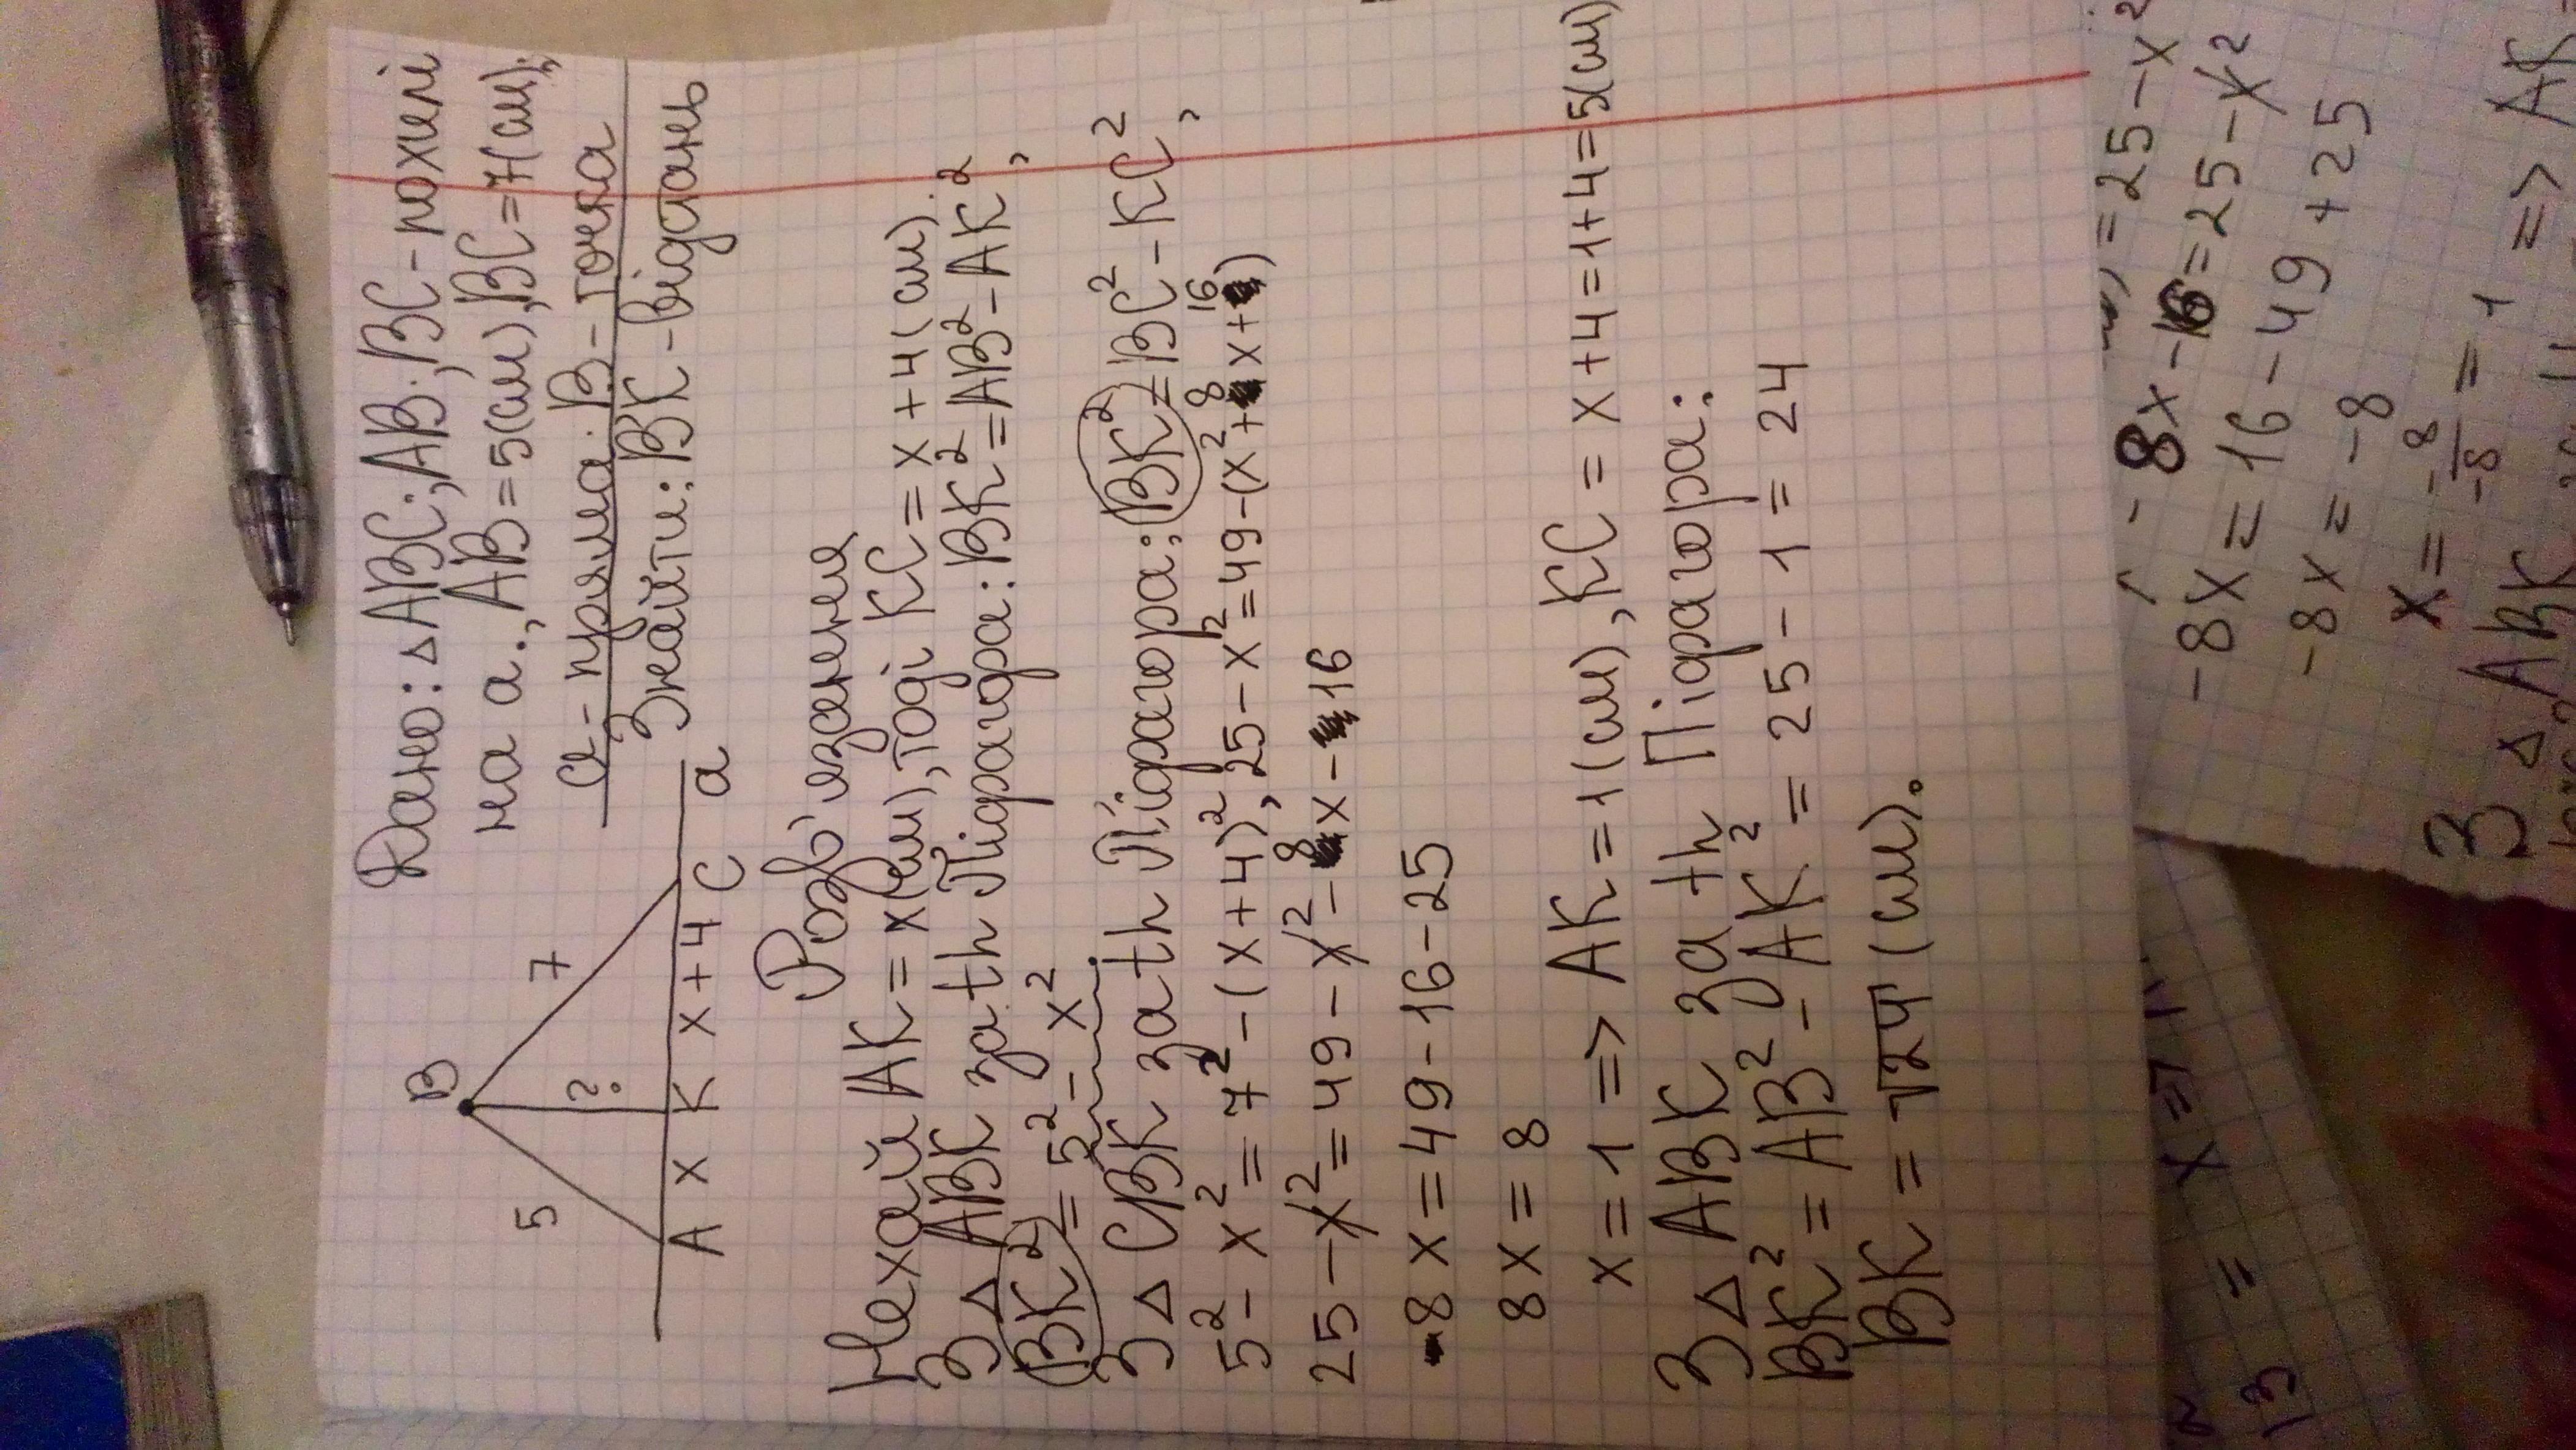 Дано: △ABC; AB; BC - похилі
на a., AB = 5(см), BC = 7(см);
a - пряма; B - точка
Знайти: BK - відстань
B
5
7
?
A x K x + 4 C a
Розв'язання
Нехай AK = x(см), тоді KC = x + 4(см).
З △ ABK за th Піфагора: BK² = AB² - AK²,
BK² = 5² - x²
З △ CBK за th Піфагора: BK² = BC² - KC²,
5² - x² = 7² - (x + 4)², 25 - x² = 49 - (x² + 8x + 16)
25 - x² = 49 - x² - 8x - 16
8x = 49 - 16 - 25
8x = 8
x = 1 => AK = 1(см), KC = x + 4 = 1 + 4 = 5(см)
З △ ABK за th Піфагора:
BK² = AB² - AK² = 25 - 1 = 24
BK = √24 (см).
= 25 - x²
- 8x - 16 = 25 - x²
-8x = 16 - 49 + 25
-8x = -8
x = -8/-8 = 1 => AK
З △ ABK
x = 1
=